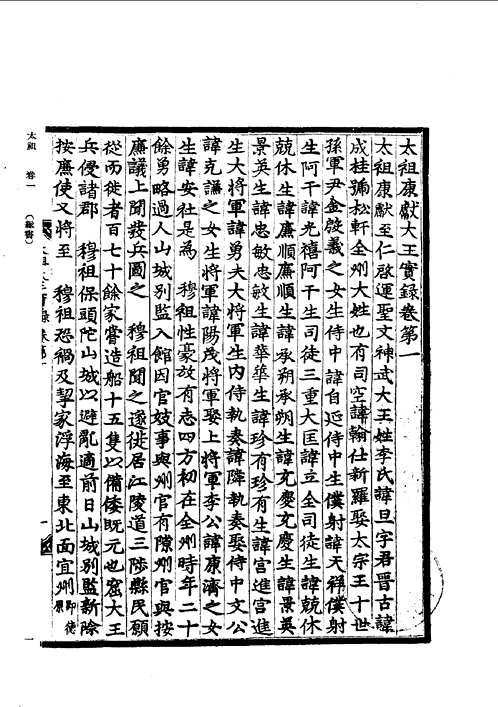 太祖康獻大王實錄卷第一
太祖康獻至仁啓運聖文神武大王姓李氏諱旦字君晉古諱
成桂號松軒全州大姓也有司空諱翰仕新羅娶太宗王十世
孫軍尹金殷義之女生侍中諱自延侍中生僕射諱天祥僕射
生阿干諱光禧阿干生司徒三重大匡諱立全司徒生諱兢休
兢休生諱廉順廉順生諱承朔承朔生諱充慶充慶生諱景英
景英生諱忠敏忠敏生諱華華生諱珍有珍有生諱宮進宮進
生大將軍諱勇夫大將軍生內侍執奏諱隣執奏娶侍中文公
諱克謙之女生將軍諱陽茂將軍娶上將軍李公諱康濟之女
生諱安社是為 穆祖性豪放有志四方初在全州時年二十
餘勇略過人山城別監入館因官妓事與州官有隙州官與按
廉議上聞發兵圖之 穆祖聞之遂徙居江陵道三陟縣民願
從而徙者百七十餘家嘗造船十五隻以備倭既元也窟大王
兵侵諸郡 穆祖保頭陀山城以避亂適前日山城別監新除
按廉使又將至 穆祖恐禍及挈家浮海至東北面宜州 即德原
太祖 卷一
一